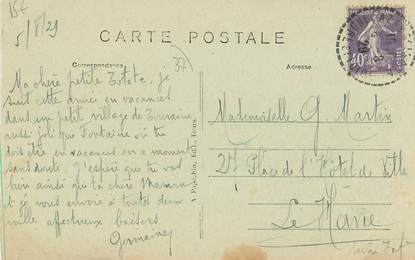 15f
5/8/29
CARTE POSTALE
Correspondance
Adresse
37
Ma chère petite Totote, je
suis cette année en vacances
dans un petit village de Touraine,
aussi joli que Fontaine où tu
dois être en vacances en ce moment
sans doute. J'espère que tu vas
bien ainsi que ta chère Maman
et je vous envoie à toutes deux
mille affectueux baisers
Germaine
Mademoiselle G. Martin
Place de l'Hôtel de Ville
Le Havre
Seine Infre
Edit., Tours
40c
POSTES